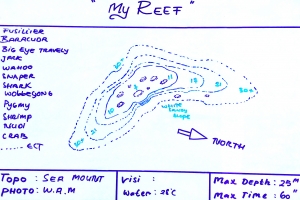 "My Reef"
FUSILIER
BARACUDA
BIG EYE TRAVELY
JACK
WAHOO
SNAPER
SHARK
WOBBEGONG
PYGMY
SHRIMP
NUDI
CRAB
ECT
WHITE
SANDY
SLOPE
NORTH
TOPO : SEA MOUNT
PHOTO: W.A.M
VISI :
WATER: 28°C
MAX DEPTH: 25M
MAX TIME: 60"